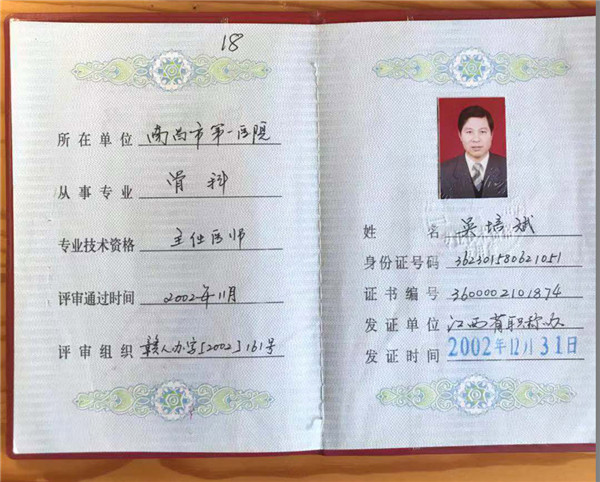 18
所在单位 南昌市第一医院
从事专业 骨科
专业技术资格 主任医师
评审通过时间 2002年11月
评审组织 赣人办字[2002]161号
姓名 吴培斌
身份证号码 362301580621051
证书编号 3600002101874
发证单位 江西省职称办
发证时间 2002年12月31日